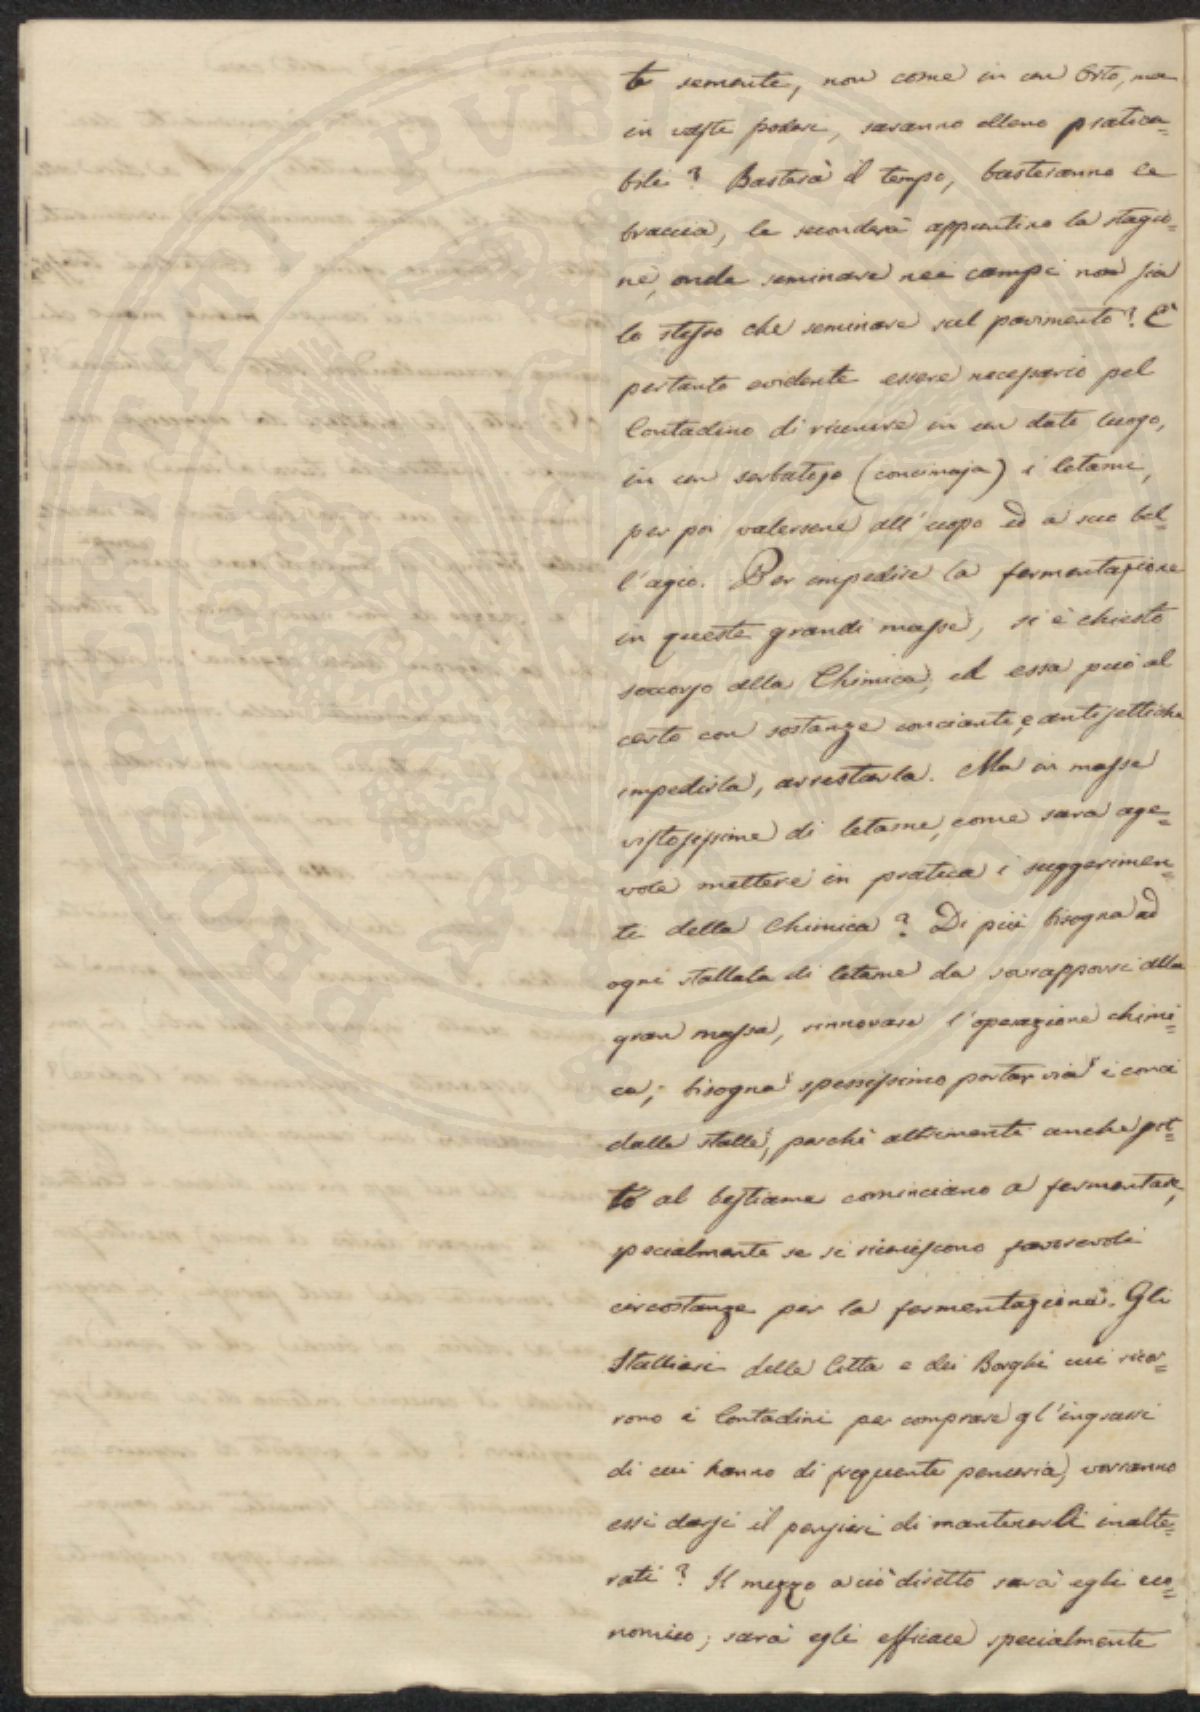 te semente, non come in un Orto, ma
in vaste podere, saranno elleno pratica=
bile? Basterà il tempo, basteranno le
braccia, le seconderà appuntino la stagio=
ne, onde seminare nei campi non sia
lo stesso che seminare sul pavimento? È
pertanto evidente essere necessario pel
Contadino di riunire in un dato luogo,
in un serbatojo (concimaja) i letami,
per poi valersene all'uopo ed a suo bel=
l'agio. Per impedire la fermentazione
in queste grandi masse, si è chiesto
soccorso alla Chimica, ed essa può al
certo con sostanze concianti, e antisettiche
impedirla, arrestarla. Ma in masse
vistosissime di letame, come sarà age=
vole mettere in pratica i suggerimen=
ti della Chimica? Di più bisogna ad
ogni stallata di letame da sovrapporsi alla
gran massa, rinnovare l'operazione chimi=
ca; bisogna spessissimo portar via i conci
dalle stalle, perchè altrimenti anche sot=
to al bestiame cominciano a fermentare,
specialmente se si riuniscono favorevoli
circostanze per la fermentazione. Gli
Stallieri delle Città e dei Borghi cui ricor=
rono i Contadini per comprare gl'ingrassi
di cui hanno di frequente penuria, vorranno
essi darsi il pensieri di mantenerli inalte=
rati? Il mezzo a ciò diretto sarà egli eco=
nomico; sarà egli efficace specialmente
PUBLIC